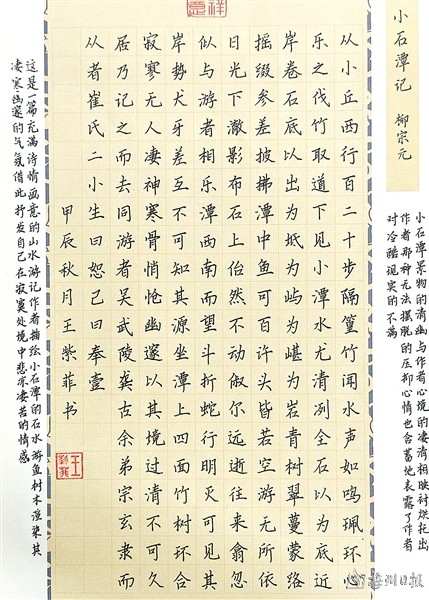 小石潭记 柳宗元
小石潭景物的清幽与作者心境的凄清相映衬烘托出
作者那种无法摆脱的压抑心情也含蓄地表露了作者
对冷酷现实的不满
从小丘西行百二十步隔篁竹闻水声如鸣珮环心
乐之伐竹取道下见小潭水尤清冽全石以为底近
岸卷石底以出为坻为屿为嵁为岩青树翠蔓蒙络
摇缀参差披拂潭中鱼可百许头皆若空游无所依
日光下澈影布石上佁然不动俶尔远逝往来翕忽
似与游者相乐潭西南而望斗折蛇行明灭可见其
岸势犬牙差互不可知其源坐潭上四面竹树环合
寂寥无人凄神寒骨悄怆幽邃以其境过清不可久
居乃记之而去同游者吴武陵龚古余弟宗玄隶而
从者崔氏二小生曰恕己曰奉壹
甲辰秋月王紫菲书
这是一篇充满诗情画意的山水游记作者描绘小石潭的石水游鱼树木渲染其
凄寒幽邃的气氛借此抒发自己在寂寞处境中悲凉凄苦的情感
梅州日报